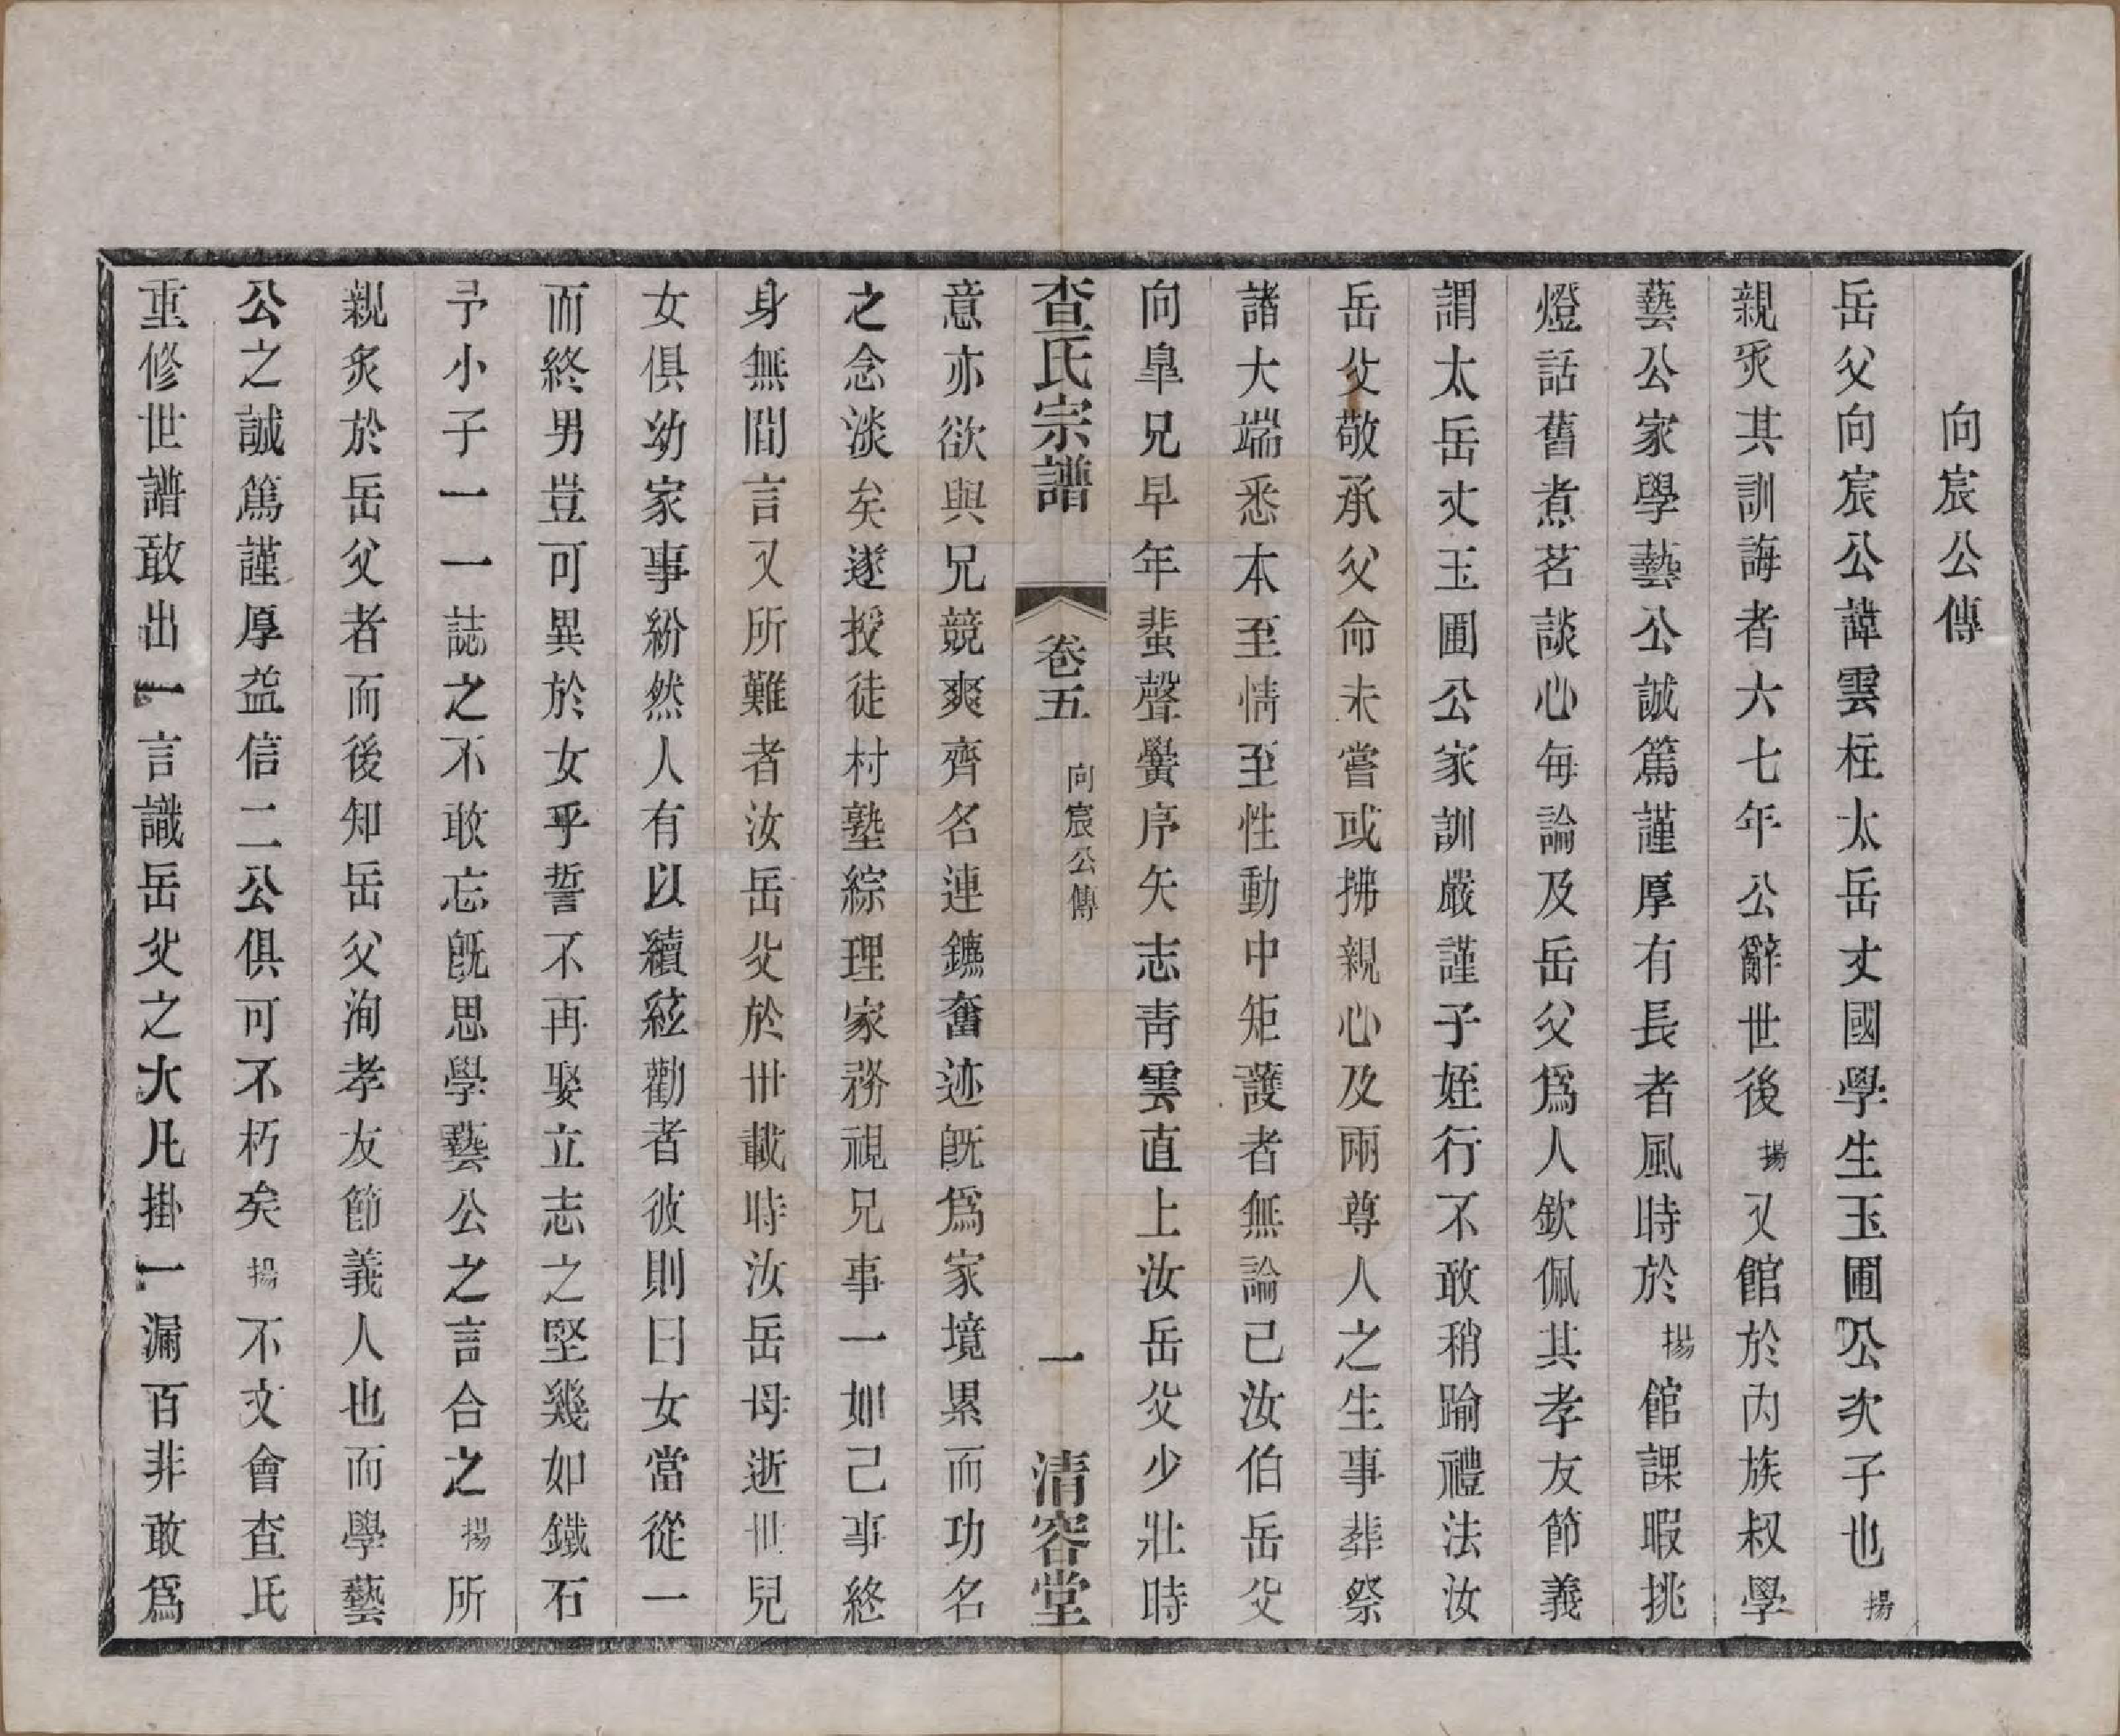 向宸公傳
岳父向宸公諱雲柱太岳丈國學生玉圃公次子也揚
親炙其訓誨者六七年公辭世後揚又館於內族叔學
藝公家學藝公誠篤謹厚有長者風時於揚館課暇挑
燈話舊煮茗談心每論及岳父爲人欽佩其孝友節義
謂太岳丈玉圃公家訓嚴謹子姪行不敢稍踰禮法汝
岳父敬承父命未嘗或拂親心及兩尊人之生事葬祭
諸大端悉本至情至性動中矩護者無論已汝伯岳父
向臯兄早年蜚聲黌序矢志靑雲直上汝岳父少壯時
查氏宗譜 卷五 向宸公傳 一 清容堂
意亦欲與兄競爽齊名連鑣奮迹旣爲家境累而功名
之念淡矣遂授徒村塾綜理家務視兄事一如己事終
身無間言又所難者汝岳父於卅載時汝岳母逝世兒
女俱幼家事紛然人有以續絃勸者彼則曰女當從一
而終男豈可異於女乎誓不再娶立志之堅幾如鐵石
予小子一一誌之不敢忘旣思學藝公之言合之揚所
親炙於岳父者而後知岳父洵孝友節義人也而學藝
公之誠篤謹厚益信二公俱可不朽矣揚不文會查氏
重修世譜敢出一言識岳父之大凡掛一漏百非敢爲